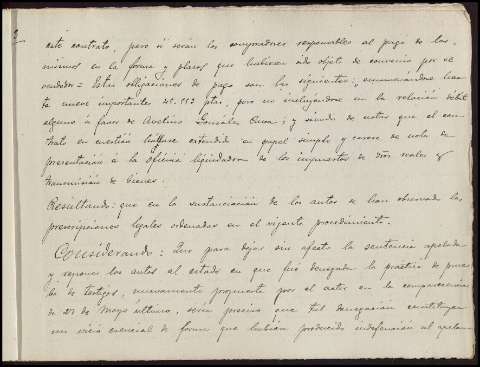 este contrato, pero si serán los compradores responsables al pago de los
mismos en la forma y plazos que hubieren sido objeto de convenio por el
vendedor = Estas obligaciones de pago son las siguientes:, enumerándose has-
ta nueve importantes ptas., pero sin incluyéndose en la relación débil
alguno á favor de Avelino González ; y siendo de notar que el con-
trato en cuestión hállase extendido en papel simple y carece de nota de
presentación á la oficina liquidadora de los impuestos de dros reales y
transmisión de bienes.
Resultando: que en la sustanciación de los autos se han observado las
prescripciones legales ordenadas en el vigente procedimiento.
Considerando: Que para dejar sin efecto la sentencia apelada
y reponer los autos al estado en que fué denegada la práctica de prue-
ba de testigos, nuevamente propuesta por el actor en la comparecencia
de 27 de Mayo último, sería preciso que tal denegación constituyera
un vicio esencial de forma que hubiera producido indefensión al apelan-